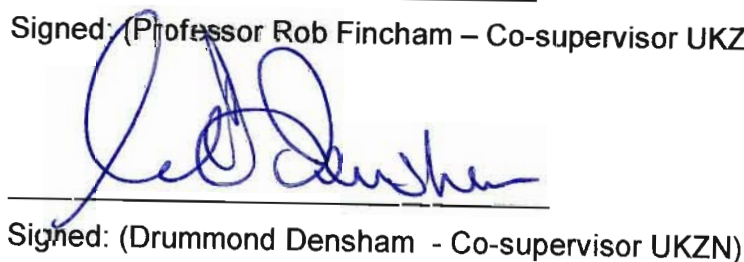 Signed: (Professor Rob Fincham – Co-supervisor UKZ
Densham
Signed: (Drummond Densham - Co-supervisor UKZN)